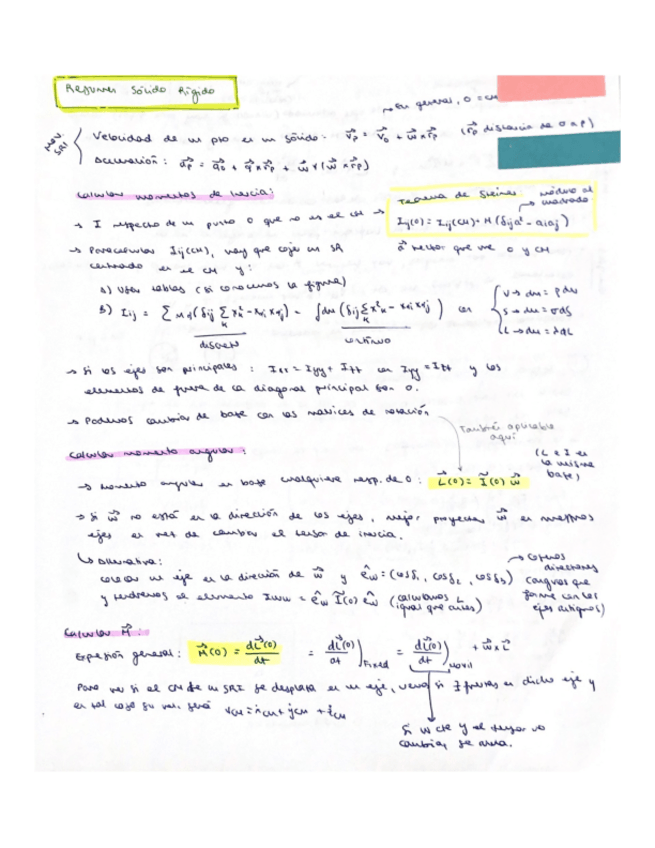 Resumen Sólido Rígido
→ En general, O = CM
Mov. SRI { Velocidad de un pto en un sólido: v⃗p = v⃗o + w⃗ x r⃗p (r⃗p distancia de O a P)
Aceleración: a⃗p = a⃗o + α⃗ x r⃗p + w⃗ x (w⃗ x r⃗p)
Calcular momentos de inercia:
Teorema de Steiner: módulo al cuadrado
→ I respecto de un punto O que no es el CM → Iij(O) = Iij(CM) + M(δij a² - ai aj)
a⃗ vector que une O y CM
→ Para calcular Iij(CM), hay que coger un SR
centrado en el CM y:
a) Usar tablas (si conocemos la figura)
b) Iij = Σ mα(δij Σ x²k - xi xj) = ∫dm (δij Σ x²k - xi xj) con { V → dm = ρdv
S → dm = σds
L → dm = λdl
discreto continuo
→ Si los ejes son principales: Ixx = Iyy + Izz con Iyy = Izz y los
elementos de fuera de la diagonal principal son 0.
→ Podemos cambiar de base con las matrices de rotación
También aplicable aquí
Calcular momento angular:
→ Momento angular en base cualquiera resp. de O: L⃗(O) = Ĩ(O) w⃗
(L e I en la misma base)
→ Si w⃗ no está en la dirección de los ejes, mejor proyectar w⃗ en nuestros
ejes en vez de cambiar el tensor de inercia.
↳ Alternativa:
colocar un eje en la dirección de w⃗ y ê_w = (cosδ₁, cosδ₂, cosδ₃)
→ Cosenos directores (ángulos que forme con los ejes antiguos)
y tendremos el elemento Iww = ê_w Ĩ(O) ê_w (calculamos L (igual que antes)
Calcular M⃗:
Expresión general: M⃗(O) = dL⃗(O)/dt = dL⃗(O)/dt )Fixed = dL⃗(O)/dt )Móvil + w⃗ x L⃗
Para ver si el CM de un SRI se desplaza en un eje, vemos si ∃ fuerzas en dicho eje y
en tal caso su vel. será v_CM = ẋ_CM + ẏ_CM + ż_CM
Si w cte y el tensor no
cambia, se anula.